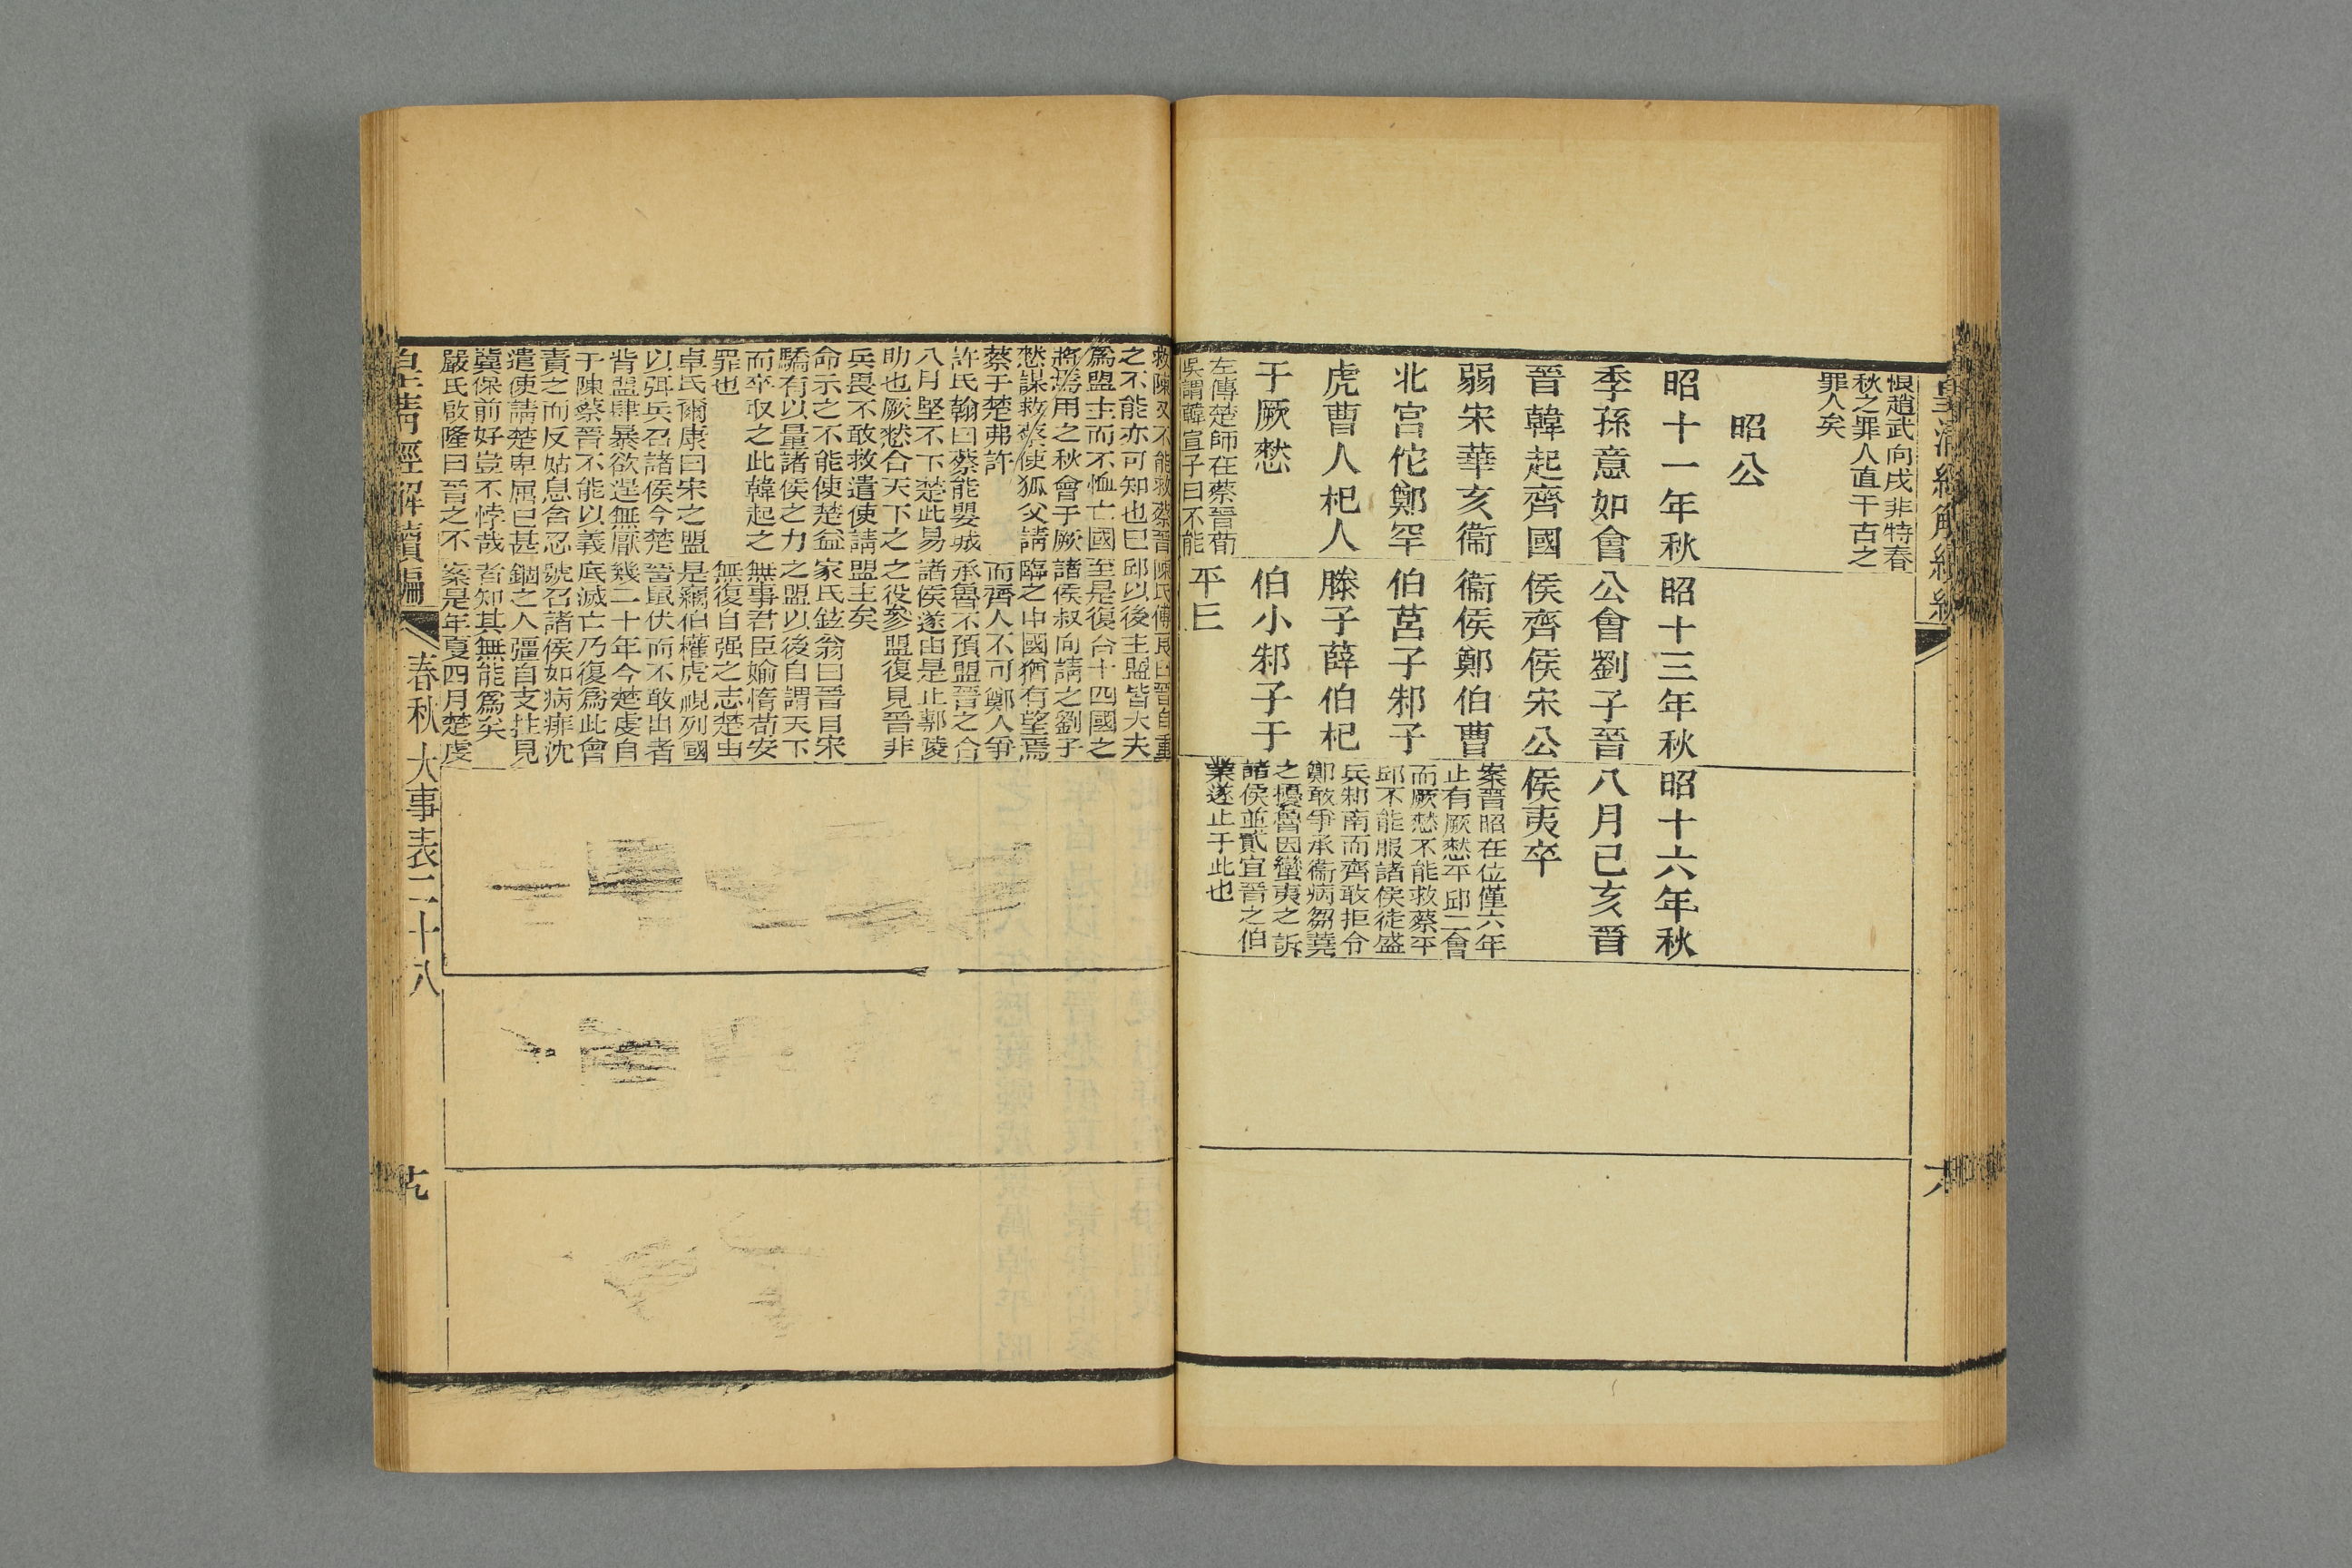 恨趙武向戌非特春
秋之罪人直千古之
罪人矣
昭公
昭十一年秋
季孫意如會
晉韓起齊國
弱宋華亥衞
北宮佗鄭罕
虎曹人杞人
于厥憖
左傳楚師在蔡晉荀
吳謂韓宣子曰不能
昭十三年秋
公會劉子晉
侯齊侯宋公
衞侯鄭伯曹
伯莒子邾子
滕子薛伯杞
伯小邾子于
平
昭十六年秋
八月己亥晉
侯夷卒
案晉昭在位僅六年
止有厥憖平邱二會
而厥憖不能救蔡平
邱不能服諸侯徒盛
兵邾南而齊敢拒令
鄭敢爭承衞病芻蕘
之擾魯因蠻夷之訴
諸侯並貳宜晉之伯
業遂止于此也
救陳又不能救蔡晉
之不能亦可知也已
爲盟主而不恤亡國
將焉用之秋會于厥
憖謀救蔡使狐父請
蔡于楚弗許
許氏翰曰蔡能嬰城
八月堅不下楚此易
助也厥憖合天下之
兵畏不敢救遣使請
命示之不能使楚益
驕有以量諸侯之力
而卒取之此韓起之
罪也
卓氏爾康曰宋之盟
以弭兵召諸侯今楚
背盟肆暴欲逞無厭
于陳蔡晉不能以義
責之而反姑息含忍
遣使請楚卑屈已甚
冀保前好豈不悖哉
嚴氏啟隆曰晉之不
陳氏傅良曰晉自重
邱以後主盟皆大夫
至是復合十四國之
諸侯叔向請之劉子
臨之中國猶有望焉
而齊人不可鄭人爭
承魯不預盟晉之合
諸侯遂由是止鄟陵
之役參盟復見晉非
盟主矣
家氏鉉翁曰晉自宋
之盟以後自謂天下
無事君臣媮惰苟安
無復自强之志楚虔
是竊伯權虎視列國
晉鼠伏而不敢出者
幾二十年今楚虔自
底滅亡乃復爲此會
號召諸侯如病痱沈
錮之人彊自支拄見
者知其無能爲矣
案是年夏四月楚虔
皇清經解續編
春秋大事表二十八